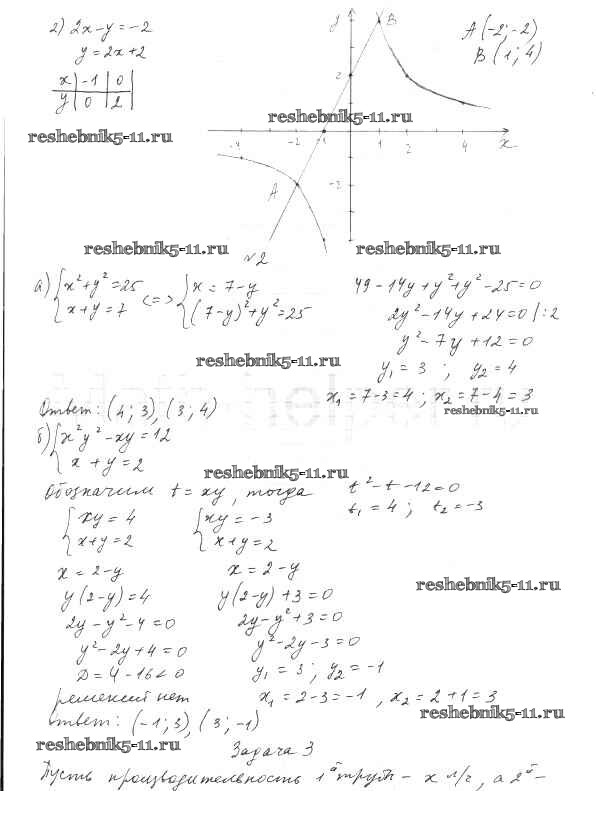 2) 2x-y=-2
y=2x+2
x | -1 | 0 |
y | 0 | 2 |
A(-2;-2)
B(1;4)
y
B
2
-4 -2 -1 1 2 4 x
A
-2
reshebnik5-11.ru
reshebnik5-11.ru
reshebnik5-11.ru
reshebnik5-11.ru
№2
а) { x²+y²=25
x+y=7 <=> { x=7-y
(7-y)²+y²=25
49-14y+y²+y²-25=0
2y²-14y+24=0 |:2
y²-7y+12=0
y₁=3 ; y₂=4
x₁=7-3=4 ; x₂=7-4=3
reshebnik5-11.ru
reshebnik5-11.ru
Ответ: (4;3), (3;4)
б) { x²y²-xy=12
x+y=2
reshebnik5-11.ru
Обозначим t=xy, тогда t²-t-12=0
t₁=4; t₂=-3
{ xy=4
x+y=2
x=2-y
y(2-y)=4
2y-y²-4=0
y²-2y+4=0
D=4-16<0
решений нет
{ xy=-3
x+y=2
x=2-y
y(2-y)+3=0
2y-y²+3=0
y²-2y-3=0
y₁=3; y₂=-1
x₁=2-3=-1, x₂=2+1=3
reshebnik5-11.ru
reshebnik5-11.ru
Ответ: (-1;3), (3;-1)
reshebnik5-11.ru
Задача 3
Пусть производительность 1ой трубы - x л/г, а 2ой -